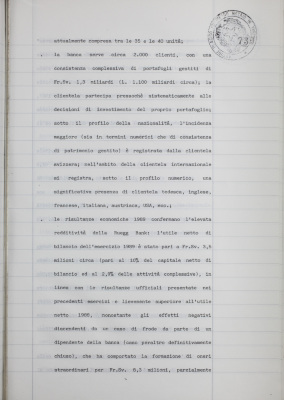 738
attualmente compreso tra le 35 e le 40 unità;
. la banca serve circa 2.000 clienti, con una
consistenza complessiva di portafogli gestiti di
Fr.Sv. 1,3 miliardi (L. 1.100 miliardi circa); la
clientela partecipa pressoché sistematicamente alle
decisioni di investimento del proprio portafoglio;
sotto il profilo della nazionalità, l'incidenza
maggiore (sia in termini numerici che di consistenza
di patrimonio gestito) è registrata dalla clientela
svizzera; nell'ambito della clientela internazionale
si registra, sotto il profilo numerico, una
significativa presenza di clientela tedesca, inglese,
francese, italiana, austriaca, USA, ecc.;
. le risultanze economiche 1989 confermano l'elevata
redditività della Ruegg Bank: l'utile netto di
bilancio dell'esercizio 1989 è stato pari a Fr.Sv. 3,5
milioni circa (pari al 10% del capitale netto di
bilancio ed al 2,5% delle attività complessive), in
linea con le risultanze ufficiali presentate nei
precedenti esercizi e lievemente superiore all'utile
netto 1988, nonostante gli effetti negativi
discendenti da un caso di frode da parte di un
dipendente della banca (caso peraltro definitivamente
chiuso), che ha comportato la formazione di oneri
straordinari per Fr.Sv. 6,1 milioni, parzialmente